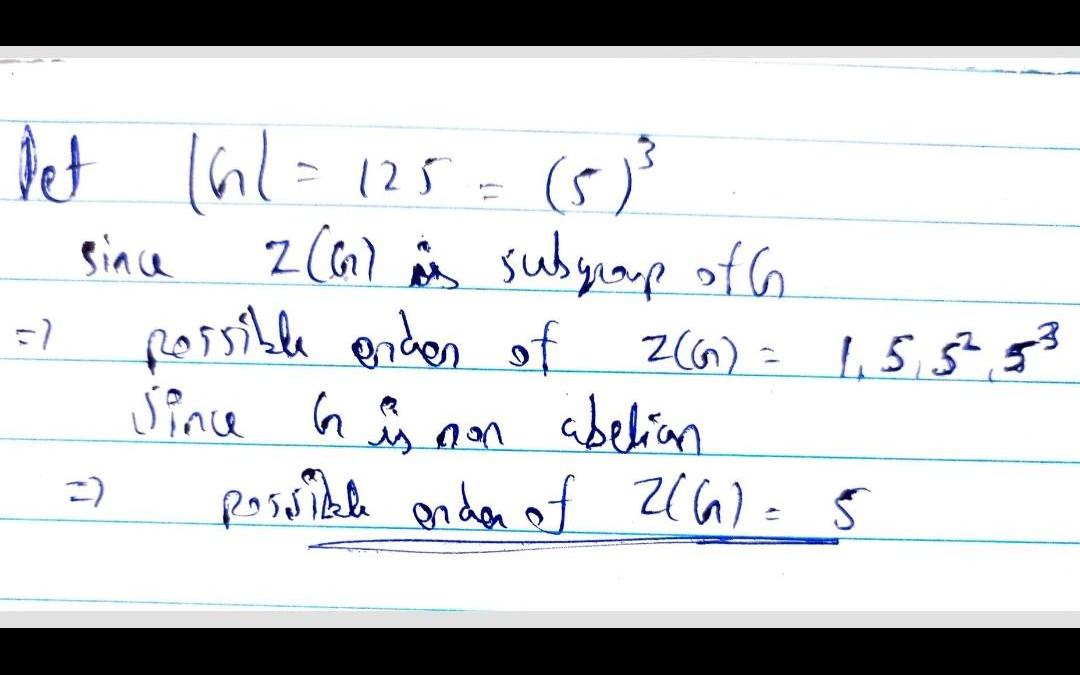 Let |G| = 125 = (5)³
since Z(G) is subgroup of G
=> possible order of Z(G) = 1, 5, 5², 5³
Since G is non abelian
=> possible order of Z(G) = 5